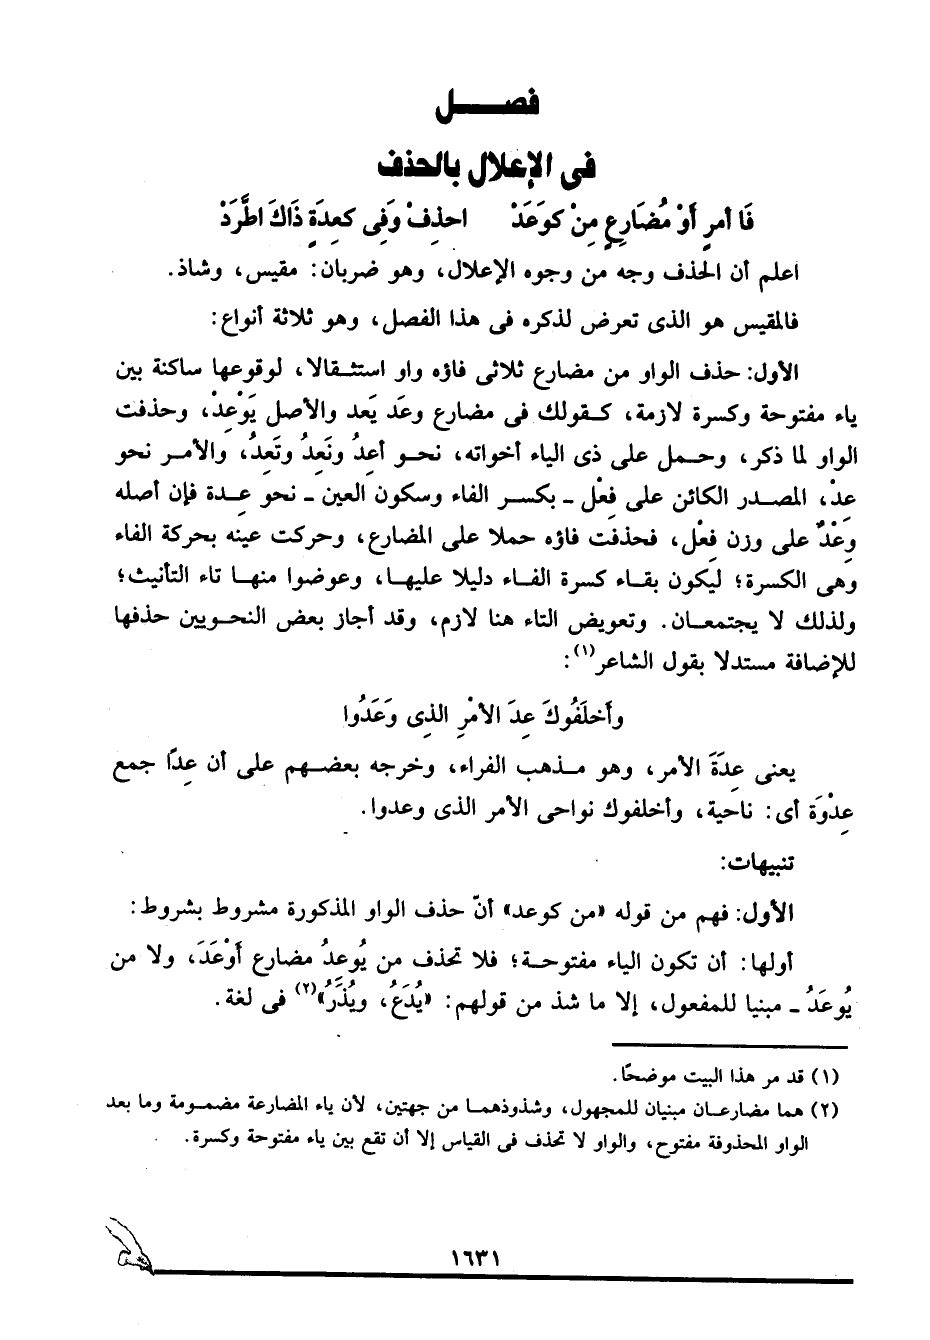 فصـــــل
فى الإعلال بالحذف
فَا أمرٍ أوْ مُضَارِعٍ مِنْ كوَعَدْ احذِفْ وَفِى كعِدَةٍ ذَاكَ اطَّرَدْ
اعلم أن الحذف وجه من وجوه الإعلال، وهو ضربان: مقيس، وشاذ.
فالمقيس هو الذى تعرض لذكره فى هذا الفصل، وهو ثلاثة أنواع:
الأول: حذف الواو من مضارع ثلاثى فاؤه واو استثقالا، لوقوعها ساكنة بين
ياء مفتوحة وكسرة لازمة، كقولك فى مضارع وعَد يَعد والأصل يَوْعِدْ، وحذفت
الواو لما ذكر، وحمل على ذى الياء أخواته، نحو أعِدُ ونَعِدُ وتَعِدُ، والأمر نحو
عدْ، المصدر الكائن على فِعْل ـ بكسر الفاء وسكون العين ـ نحو عِدة فإن أصله
وِعْدٌ على وزن فِعْل، فحذفت فاؤه حملا على المضارع، وحركت عينه بحركة الفاء
وهى الكسرة؛ ليكون بقاء كسرة الفاء دليلا عليها، وعوضوا منها تاء التأنيث؛
ولذلك لا يجتمعان. وتعويض التاء هنا لازم، وقد أجاز بعض النحويين حذفها
للإضافة مستدلا بقول الشاعر(١):
وأخلَفُوكَ عِدَ الأمْرِ الذِى وَعَدُوا
يعنى عِدَةَ الأمر، وهو مذهب الفراء، وخرجه بعضهم على أن عِدًا جمع
عِدْوَة أى: ناحية، وأخلفوك نواحى الأمر الذى وعدوا.
تنبيهات:
الأول: فهم من قوله «من كوعد» أنّ حذف الواو المذكورة مشروط بشروط:
أولها: أن تكون الياء مفتوحة؛ فلا تحذف من يُوعِدُ مضارع أوْعَدَ، ولا من
يُوعَدُ ـ مبنيا للمفعول، إلا ما شذ من قولهم: «يُدَعُ، ويُذَرُ»(٢) فى لغة.
(١) قد مر هذا البيت موضحًا.
(٢) هما مضارعان مبنيان للمجهول، وشذوذهما من جهتين، لأن ياء المضارعة مضمومة وما بعد
الواو المحذوفة مفتوح، والواو لا تحذف فى القياس إلا أن تقع بين ياء مفتوحة وكسرة.
١٦٣١